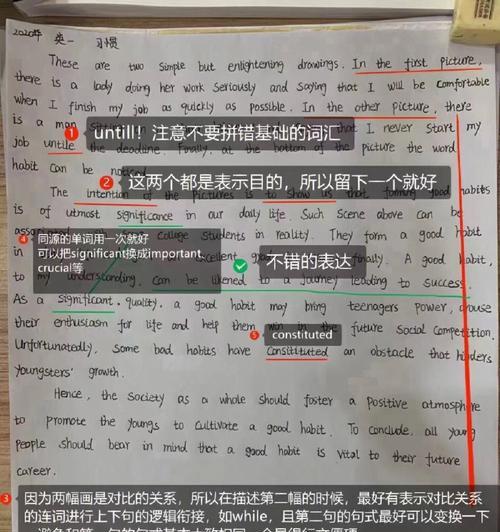 2020年 英一 习惯
These are two simple but enlightening drawings. In the first picture,
there is a lady doing her work seriously and saying that I will be comfortable
when I finish my job as quickly as possible. In the other picture, there
is a man
that I never start my
① untill！注意不要拼错基础的词汇
job untile the deadline. Finally, at the bottom of the picture the word
habit can be
② 这两个都是表示目的，所以留下一个就好
The intention of the pictures is to show us that forming good habits
is of utmost significance in our daily life. Such scene above can be
college students in reality. They form a good habit
④ 同源的单词用一次就好
可以把significant换成important,
crucial等
不错的表达
finally. A good habit,
to my understanding, can be likened to a journey leading to success.
As a significant quality, a good habit may bring teenagers power, arouse
their enthusiasm for life and help them win in the future social competition.
⑤ constituted
Unfortunatedly, some bad habits have consittuted an obstacle that hinders
youngsters' growth.
Hence, the society as a whole should foster a positive atmosphere
to promote the youngs to cultivate a good habit. To conclude, all young
people should bear in mind that a good habit is vital to their future
career.
③ 因为两幅画是对比的关系，所以在描述第二幅的时候，最好有表示对比关系
的连词进行上下句的逻辑衔接，如while，且第二句的句式最好可以变换一下